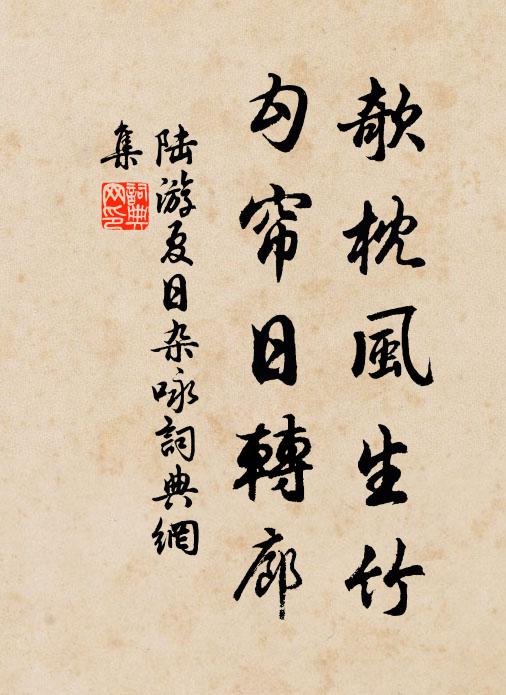 欹枕風生竹
勾帘日轉廊
陆游夏日杂咏詞典網
集
詞典网印